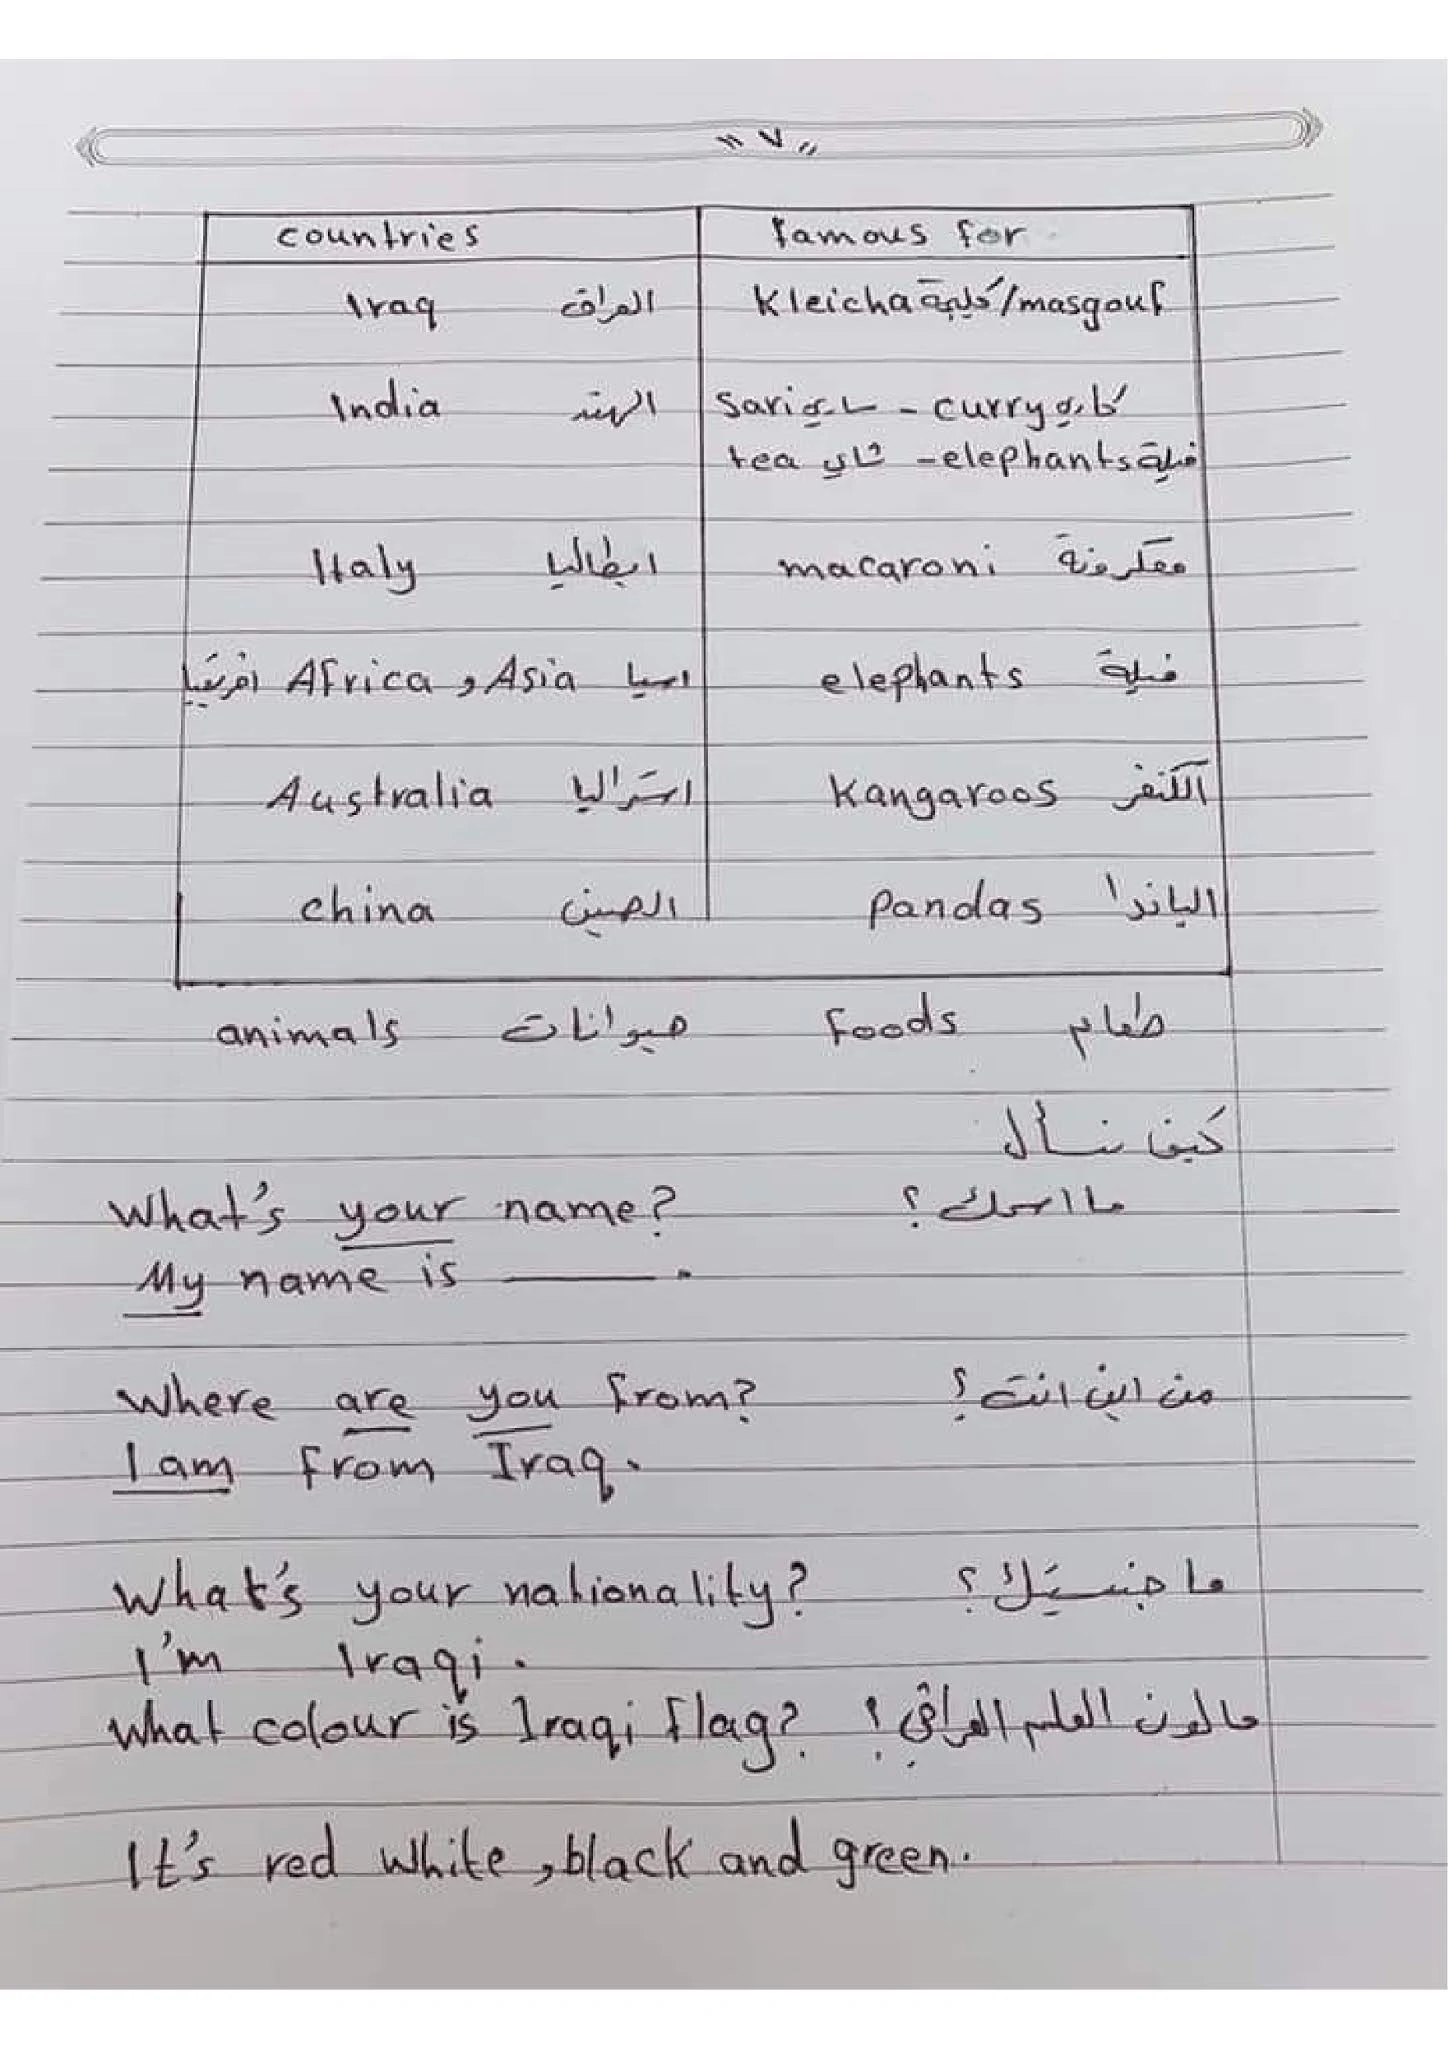 " ٧ "
countries famous for
Iraq العراق Kleicha كليجة / masgouf
India الهند sari ساري - curry كاري
tea شاي - elephants فيلة
Italy ايطاليا macaroni معكرونة
افريقيا Africa و Asia اسيا elephants فيلة
Australia استراليا Kangaroos الكنغر
china الصين pandas الباندا
animals حيوانات foods طعام
كيف نسأل
What's your name? ما اسمك ؟
My name is ———.
Where are you from? من اين انت ؟
I am from Iraq.
What's your nationality? ما جنسيتك ؟
I'm Iraqi.
What colour is Iraqi flag? مالون العلم العراقي ؟
It's red white, black and green.